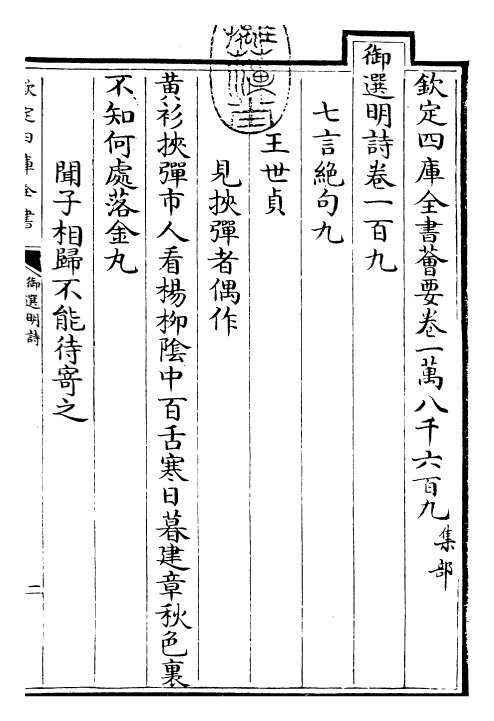 欽定四庫全書薈要卷一萬八千六百九 集部
御選明詩卷一百九
七言絶句九
王世貞
見挾彈者偶作
黄衫挾彈市人看楊柳陰中百舌寒日暮建章秋色裏
不知何處落金丸
聞子相歸不能待寄之
欽定四庫全書
御選明詩